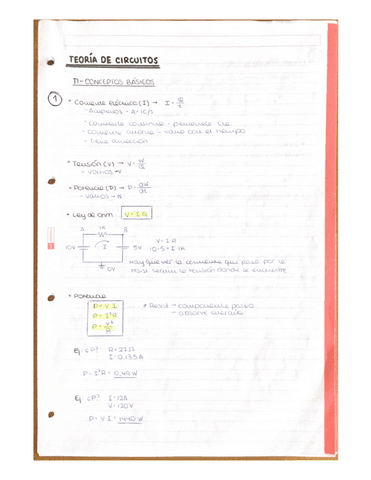 TEORÍA DE CIRCUITOS
T1 - CONCEPTOS BÁSICOS
1
• Corriente eléctrica (I) → I = Q/t
- Amperios - A = (C/s)
- Corriente continua - permanece cte
- Corriente alterna - varía con el tiempo
- Tiene dirección
• Tensión (V) → V =
- voltios
• Potencia (P) → P = dW/dt
- vatios
• Ley de Ohm: V = I R
A 1K B
10V I 5V
0V
V = I R
10-5 = I 1K
Hay que ver la corriente que pasa por la
resist. según la tensión donde se encuentre
• Potencia
P = V I
P = I²R
P = V²/R
* Resist → componente pasivo
- absorbe energía
Ej: ¿P? R = 27Ω
I = 0.135A
P = I²R = 0,49 W
Ej: ¿P? I = 12A
V = 120V
P = V I = 1440 W